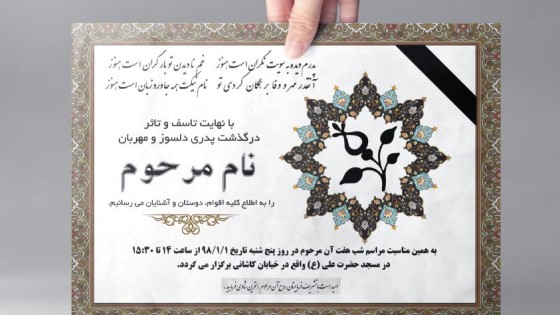 پدرم دیده بسویت نگران است هنوز    غم نادیدن تو بار گران است هنوز
آنقدر مهر و وفا بر همگان کردی تو    نام نیکت همه جا ورد زبان است هنوز
با نهایت تاسف و تاثر
درگذشت پدری دلسوز و مهربان
نام مرحوم
را به اطلاع کلیه اقوام، دوستان و آشنایان می رسانیم.
به همین مناسبت مراسم شب هفت آن مرحوم در روز پنج شنبه تاریخ ۹۸/۱/۱ از ساعت ۱۴ تا ۱۵:۳۰
در مسجد حضرت علی (ع) واقع در خیابان کاشانی برگزار می گردد.
امید است با تشریف فرمایتان روح آن مرحوم را قرین شادی فرمایید.